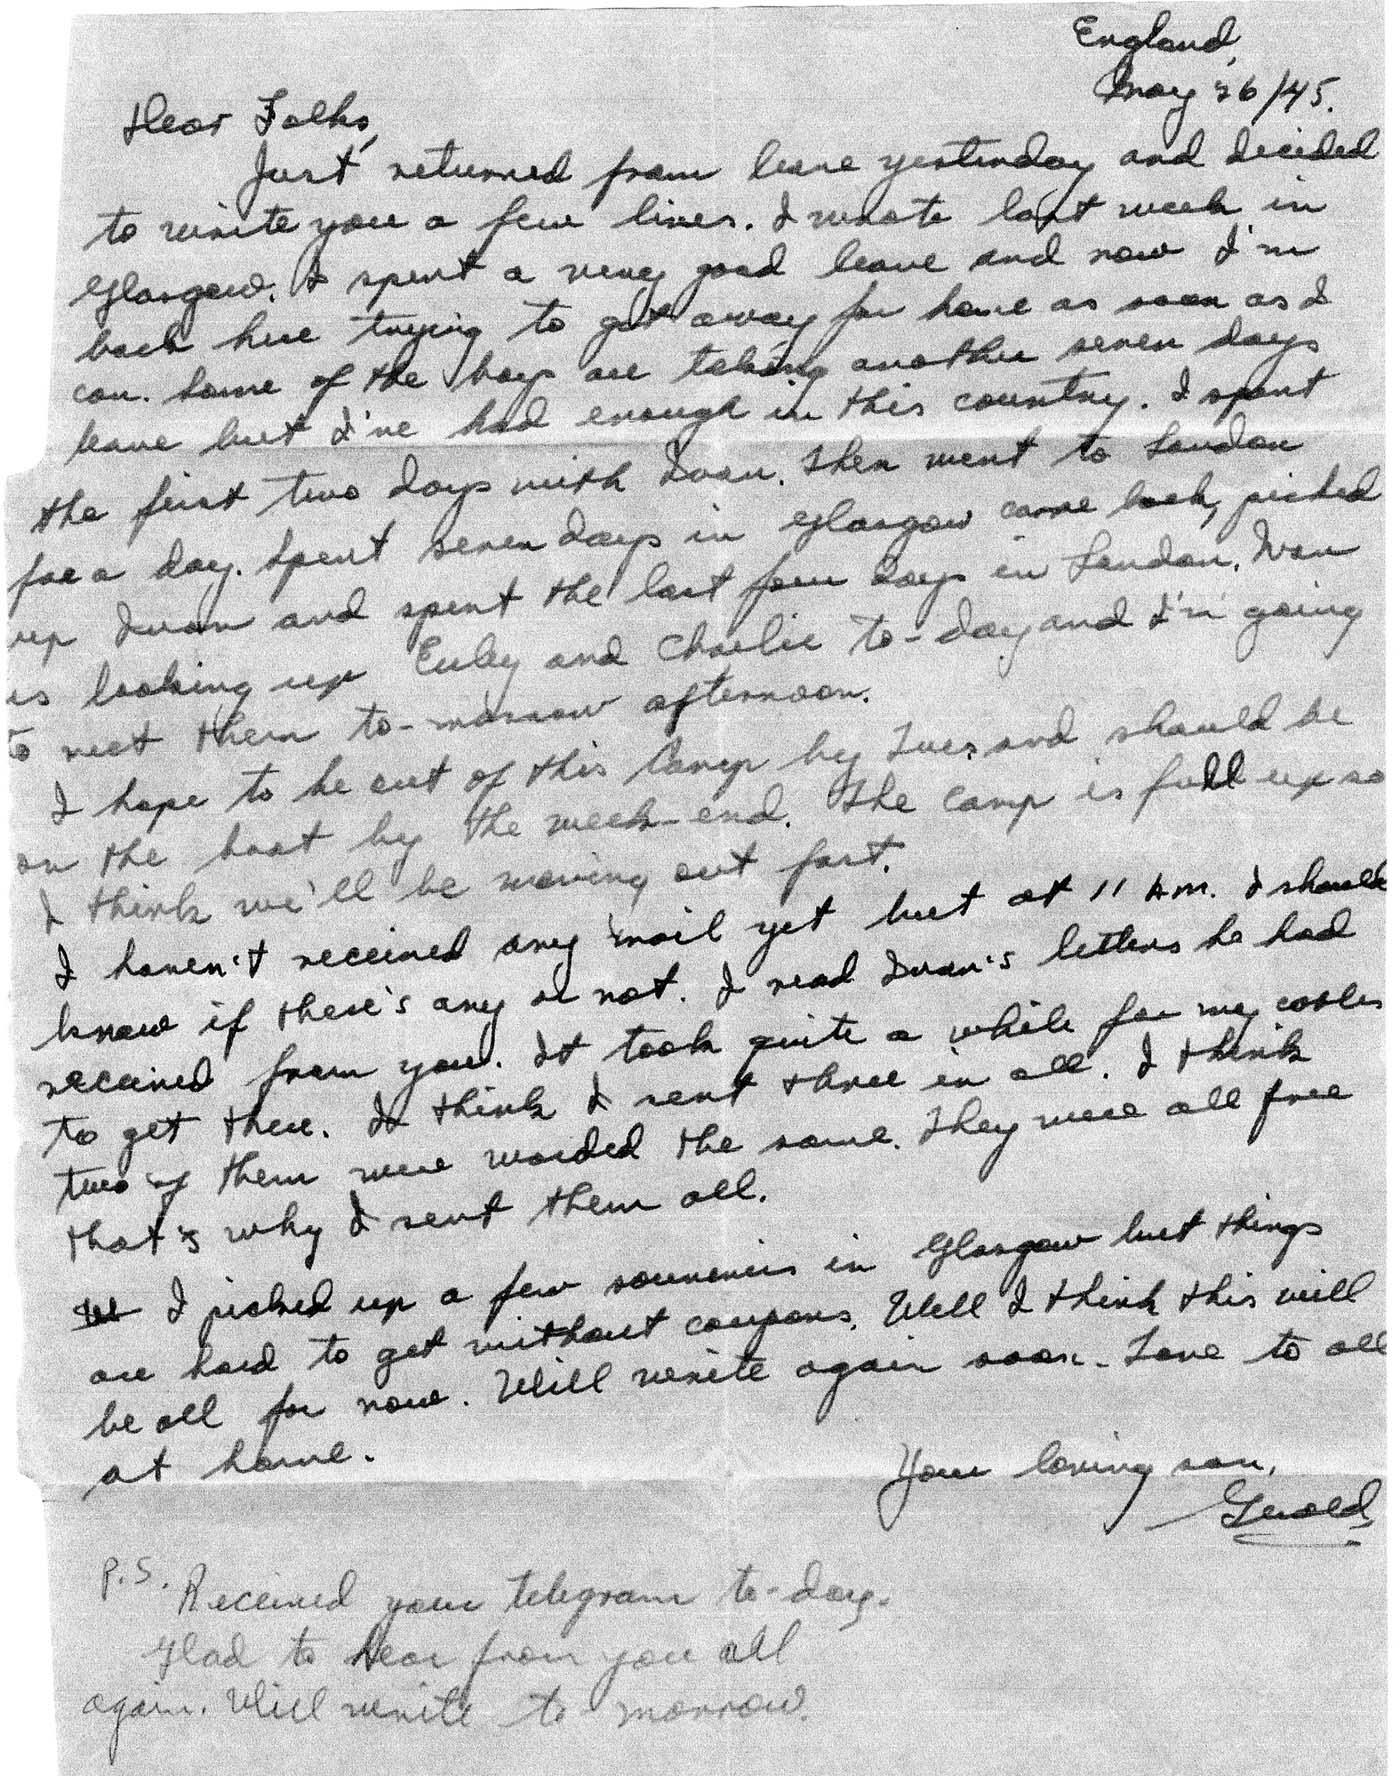 England,
May 26/45.
Dear Folks,
Just returned from leave yesterday and decided
to write you a few lines. I wrote last week in
Glasgow. I spent a very good leave and now I'm
back here trying to get away for home as soon as I
can. Some of the boys are taking another seven days
leave but I've had enough in this country. I spent
the first two days with Ivan. Then went to London
for a day. Spent seven days in Glasgow came back, picked
up Ivan and spent the last four days in London. Ivan
is looking up and Charlie to-day and I'm going
to meet them to-morrow afternoon.
I hope to be out of this Camp by Tues. and should be
on the boat by the week-end. The camp is full up so
I think we'll be moving out fast.
I haven't received any mail yet but at 11 A.M. I should
know if there's any or not. I read Ivan's letters he had
received from you. It took quite a while for my cables
to get there. I think I sent three in all. I think
two of them were worded the same. They were all free
that's why I sent them all.
I picked up a few souvenirs in Glasgow but things
are hard to get without coupons. Well I think this will
be all for now. Will write again soon. Love to all
at home.
Your loving son,
Gerald
P.S. Received your telegram to-day.
Glad to hear from you all
again. Will write to-morrow.